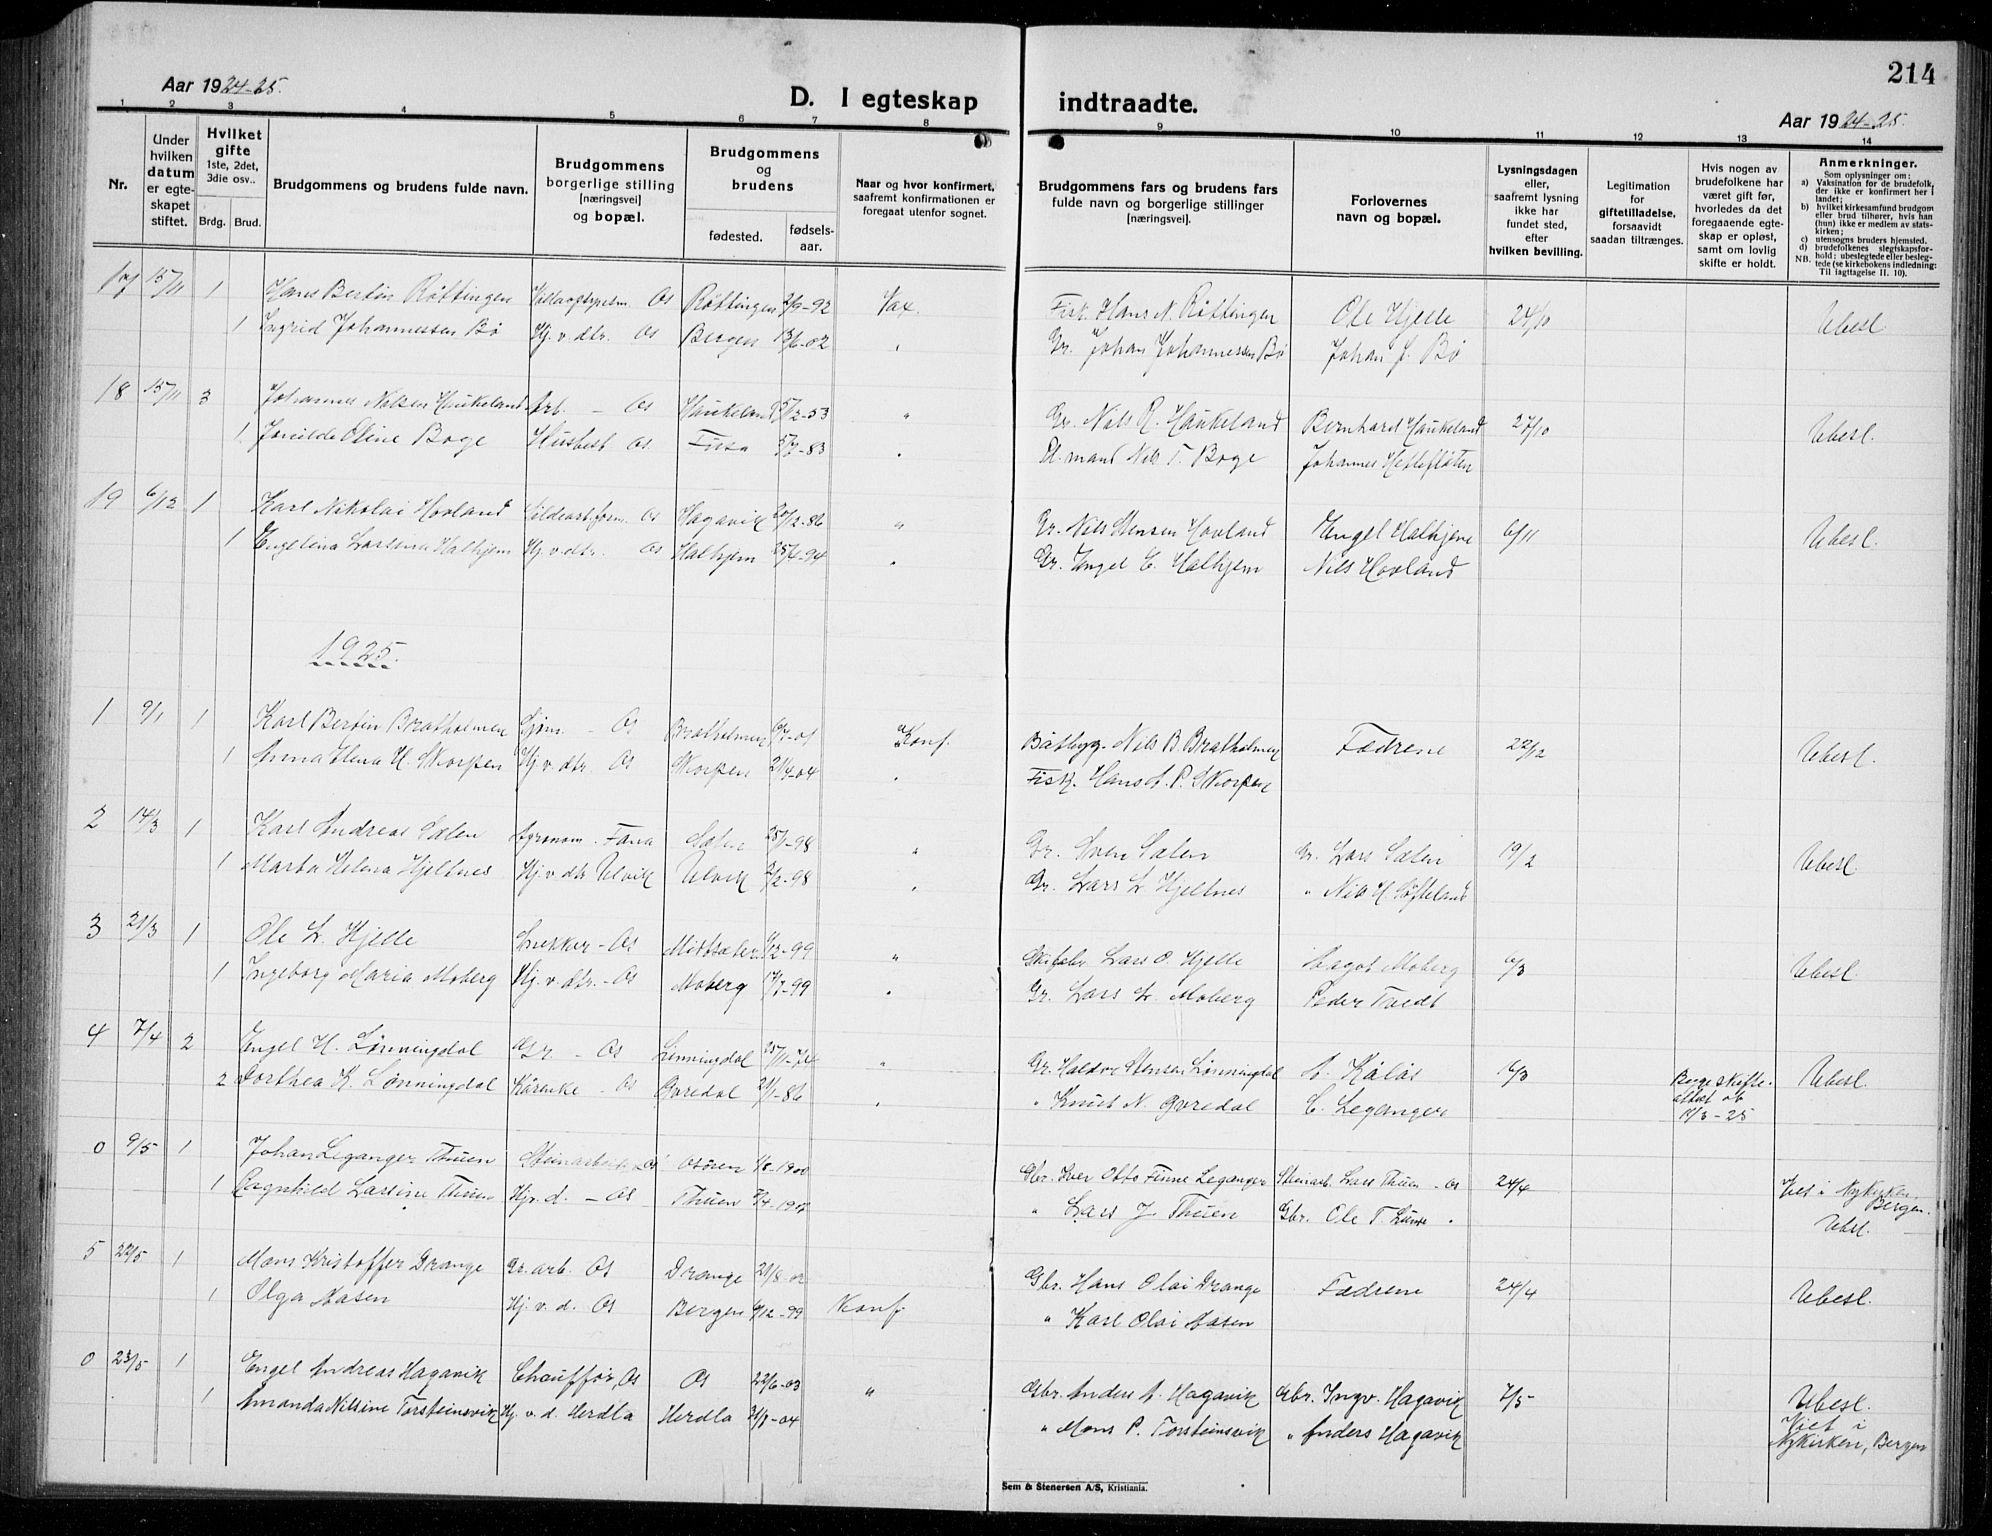 214
Aar 1924-25.
D. I egteskap indtraadte.
Aar 1924-25.
1 2 3 4 5 6 7 8 9 10 11 12 13 14
Nr.
Under hvilken datum er egteskapet stiftet.
Hvilket gifte 1ste, 2det, 3die osv..
Brdg. Brud.
Brudgommens og brudens fulde navn.
Brudgommens borgerlige stilling [næringsvei] og bopæl.
Brudgommens og brudens
fødested. fødselsaar.
Naar og hvor konfirmert, saafremt konfirmationen er foregaat utenfor sognet.
Brudgommens fars og brudens fars fulde navn og borgerlige stillinger [næringsvei].
Forlovernes navn og bopæl.
Lysningsdagen eller, saafremt lysning ikke har fundet sted, efter hvilken bevilling.
Legitimation for giftetilladelse, forsaavidt saadan tiltrænges.
Hvis nogen av brudefolkene har været gift før, hvorledes da det foregaaende egteskap er opløst, samt om lovlig skifte er holdt.
Anmerkninger.
Som oplysninger om:
a) Vaksination for de brudefolk, der ikke er konfirmert her i landet;
b) hvilket kirkesamfund brudgom eller brud tilhører, hvis han (hun) ikke er medlem av statskirken;
c) utensogns bruders hjemsted.
d) brudefolkenes slegtskapsforhold: ubeslegtede eller beslegtede (se kirkebokens indledning: Til iagttagelse II. 10).
NB.
17 15/11 1 Hans Bertin Røttingen Os Røttingen 2/9-92 Vax. Fisk. Hans N. Røttingen Ole Hjelle 24/10 Ubesl.
1 Ingrid Johannessen Bø Hj.v.dtr. Os Bergen 13/6-02 " Gr. Johan Johannessen Bø Johan J. Bø
18 15/11 3 Johannes Nilsen Haukeland Arb. - Os Haukeland 15/12-53 " Gr. Nils R. Haukeland Bernhard Haukeland 27/10 Ubesl.
1 Jonilde Oline Boge Husbest. Os Fusa 5/7-83 " Pl.mand Nils T. Boge Johannes Helleflöten
19 6/12 1 Karl Nikolai Hovland Sildearb.form. Os Hagavik 20/2-86 " Gr. Nils Stensen Hovland Engel Halhjem 6/11 Ubesl.
1 Engelina Larsina Halhjem Hj.v.dtr. Os Halhjem 25/4-94 " Gr. Engel E. Halhjem Nils Hovland
1925.
1 9/1 1 Karl Bertin Bratholmen Sjøm. - Os Bratholmen 6/7-01 Konf. Båtbyg. Nils B. Bratholmen Fædrene 22/12 Ubesl.
1 Anna Elena H. Skorpen Hj.v.dtr. Os Skorpen 21/4-04 " Fisk. Hans A. P. Skorpen
2 14/3 1 Karl Andreas Sælen Agronom. Fana Sælen 25/1-98 " Gr. Sven Sælen Gr. Lars Sælen 19/2 Ubesl.
1 Marta Helena Hjeltnes Hj.v.dtr Ulvik Ulvik 2/2-98 " Gr. Lars L. Hjeltnes " Nils H. Søfteland
3 21/3 1 Ole L. Hjelle Snekker - Os Midtsæter 1/12-99 " Lars O. Hjelle Hagot Moberg 6/3 Ubesl.
1 Ingeborg Maria Moberg Hj.v.dtr. - Os Moberg 17/7-99 " Gr. Lars L. Moberg Peder Tvedt
4 7/4 2 Engel H. Lønningdal Gr. - Os Lønningdal 25/11-74 " Gr. Haldor Stensen Lønningdal A. Kålås 6/3 Begge skifte- Ubesl.
2 Dorthea K. Lønningdal Kårenke - Os Gvredal 21/1-86 " " Knut N. Gvredal C. Leganger attest ob 11/3-25
0 9/5 1 Johan Leganger Thuen Steinarbeid. Os Osøren 1/8-1900 Gbr. Iver Otto Finne Leganger Steinarb. Lars Thuen - Os 24/4 Viet i Nykirken, Bergen.
1 Ragnhild Larsine Thuen Hj.d. - Os Thuen " Lars J. Thuen Gbr. Ole T. Lunde " Ubsl.
5 22/5 1 Mons Kristoffer Drange Gr.arb. Os Drange 21/8-02 Gbr. Hans Olai Drange Fædrene 24/4 Ubesl.
1 Olga Aasen Hj.v.d. Os Bergen 9/12-99 Konf " Karl Olai Aasen
0 23/5 1 Engel Andreas Hagavik Chauffør, Os Os 22/6-03 " Gbr. Anders A. Hagavik Gbr. Ingv. Hagavik 7/5 Ubesl.
1 Amanda Nilsine Torsteinsvik Hj.v.d. Herdla Herdla 31/8-04 " Mons P. Torsteinsvik " Anders Hagavik Viet i Nykirken, Bergen
Sem & Stenersen A/S, Kristiania.